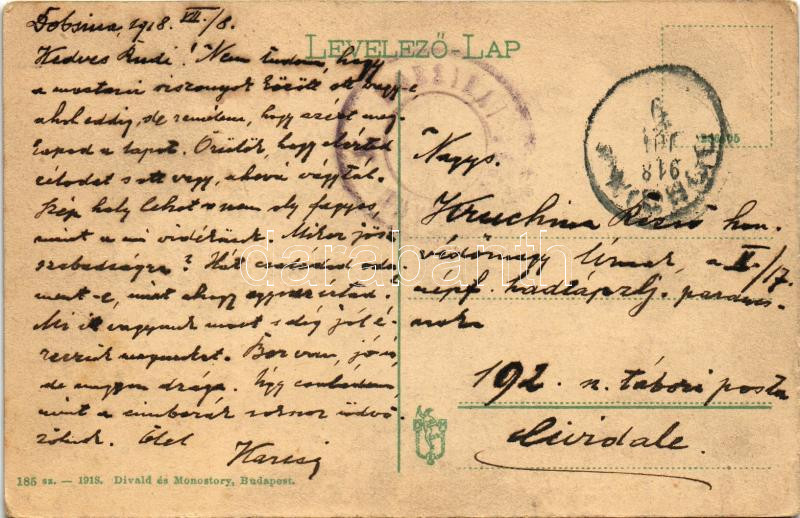 Dobsina, 1918. VII./8.
Kedves Rudi! Nem tudom, hogy
a mostani viszonyok között ott vagy-e
ahol eddig, de remélem, hogy azért meg-
kapod a lapot. Örülök, hogy elérted
célodat s ott vagy, ahová vágytál.
Szép hely lehet s nem oly fagyos
mint a mi vidékünk. Mikor jösz
szabadságra? Hát családod oda
ment-e, mint ahogy
Mi itt vagyunk most s elég jól é-
rezzük magunkat. Bor van, jó is,
de nagyon drága. Úgy családom,
mint a cimborák sokszor üdvö-
zölnek. Ölel
Karcsi
LEVELEZŐ-LAP
Nagys.
Kruchina Rezső hon-
védőrnagy Úrnak, a II./17.
népf. parancs-
nok
192. sz. tábori posta
Cividale.
918
JUL
9
185 sz. — 1918. Divald és Monostory, Budapest.
darabanth